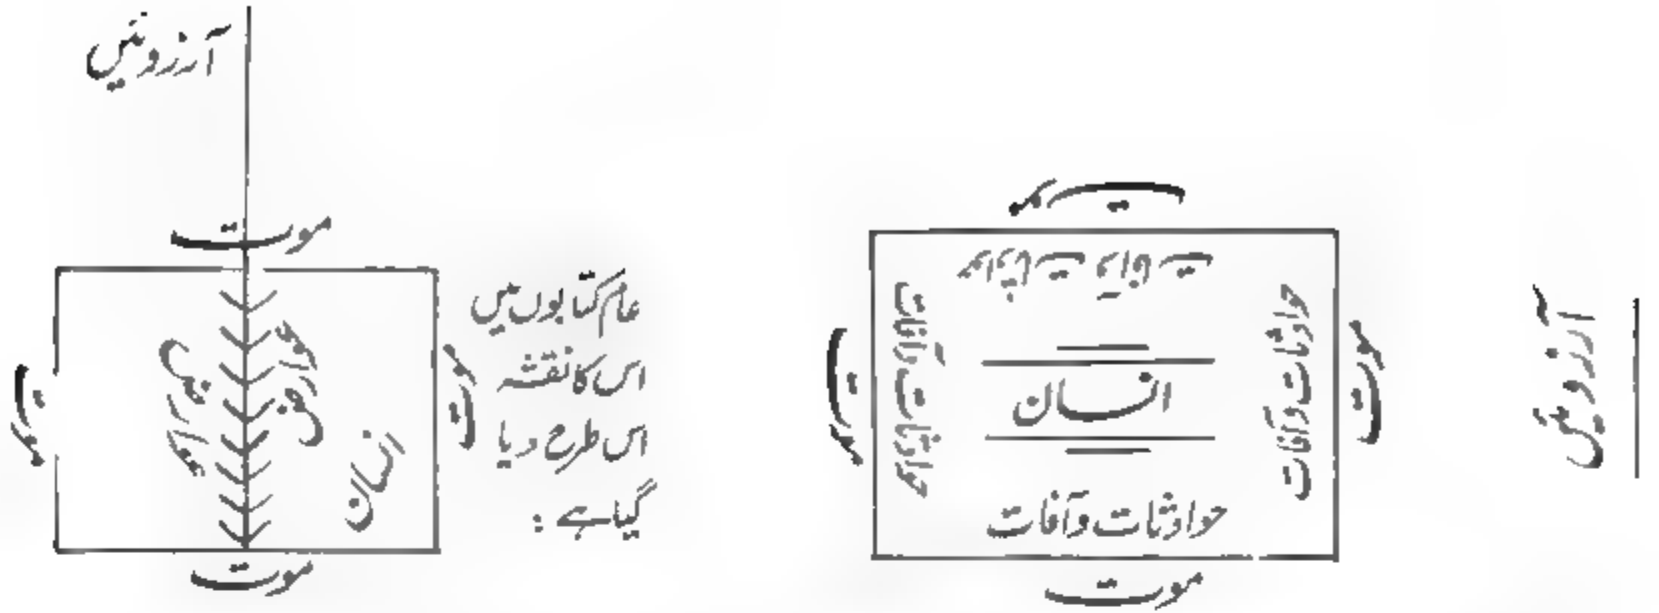 آرزوئیں
موت
حوادثات و آفات
حوادثات و آفات
انسان
حوادثات و آفات
حوادثات و آفات
موت
موت
موت
عام کتابوں میں
اس کا نقشہ
اس طرح دیا
گیا ہے :
آرزوئیں
موت
عوارض
عوارض
انسان
موت
موت
موت